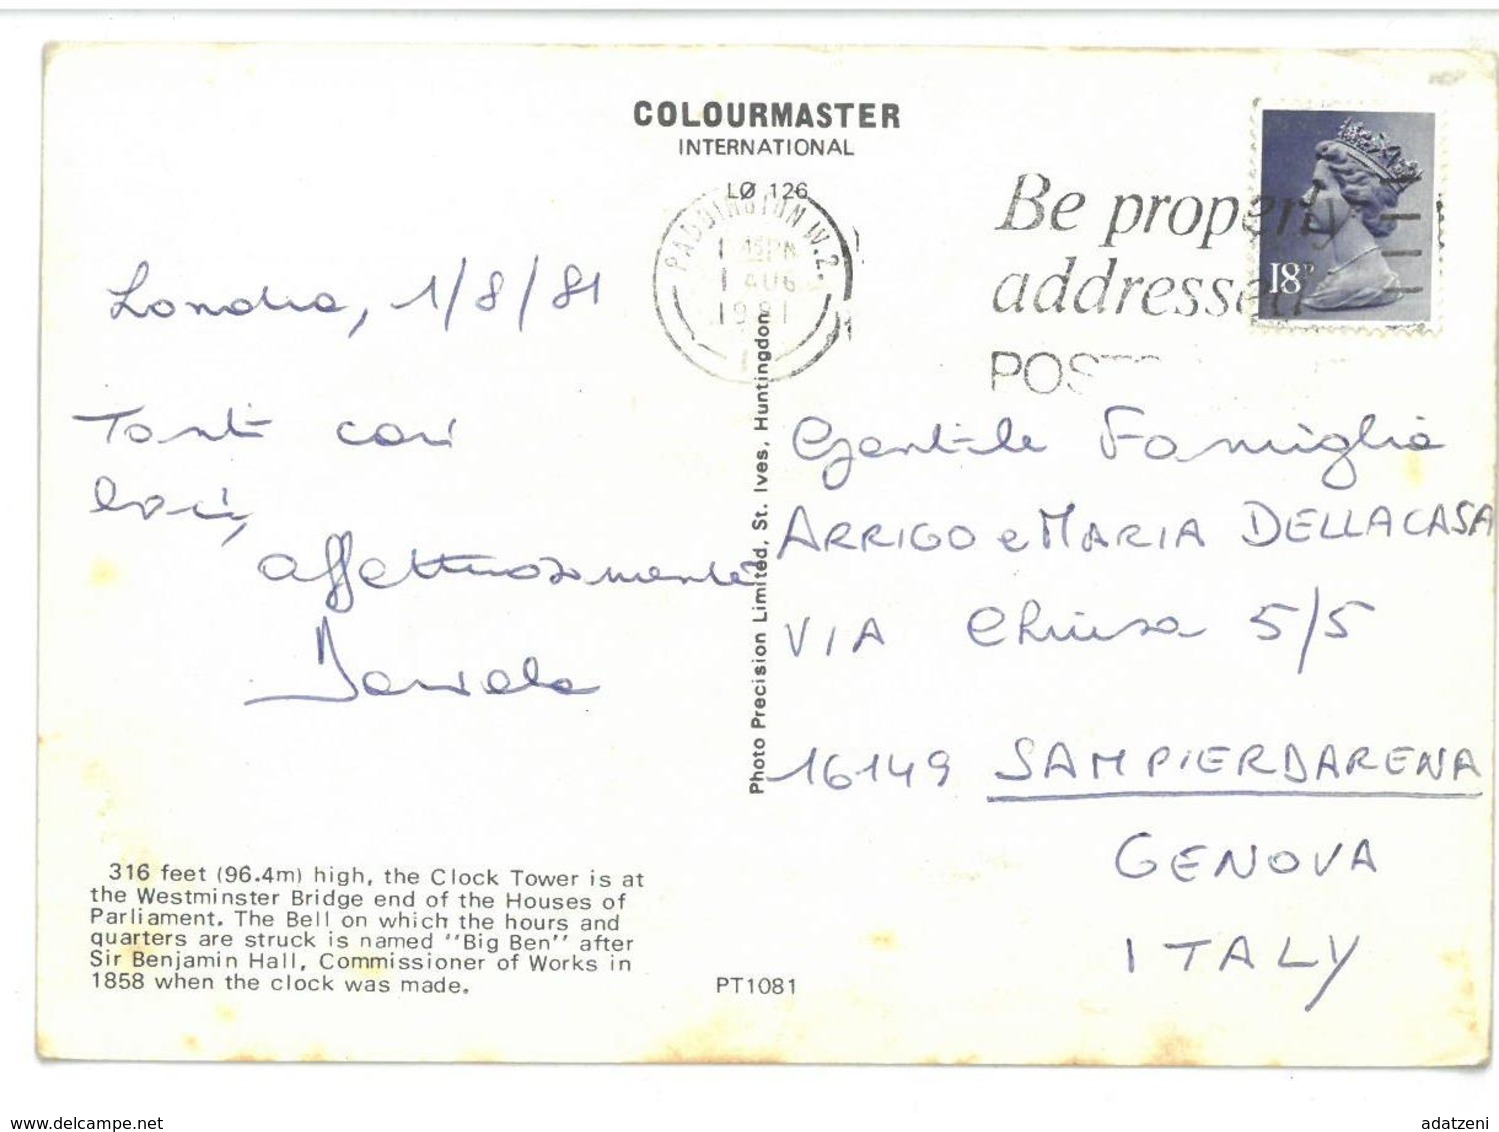 COLOURMASTER
INTERNATIONAL
LØ 126
PADDINGTON W.2.
1 AUG
1981
Be properly
addressed
18P
Londra, 1/8/81
Tanti cari
baci,
affettuosamente
Daniela
Photo Precision Limited, St. Ives, Huntingdon.
Gentile Famiglia
ARRIGO e MARIA DELLACASA
VIA Chiusa 5/5
16149 SAMPIERDARENA
GENOVA
ITALY
316 feet (96.4m) high, the Clock Tower is at
the Westminster Bridge end of the Houses of
Parliament. The Bell on which the hours and
quarters are struck is named "Big Ben" after
Sir Benjamin Hall, Commissioner of Works in
1858 when the clock was made.
PT1081
www.delcampe.net
adatzeni